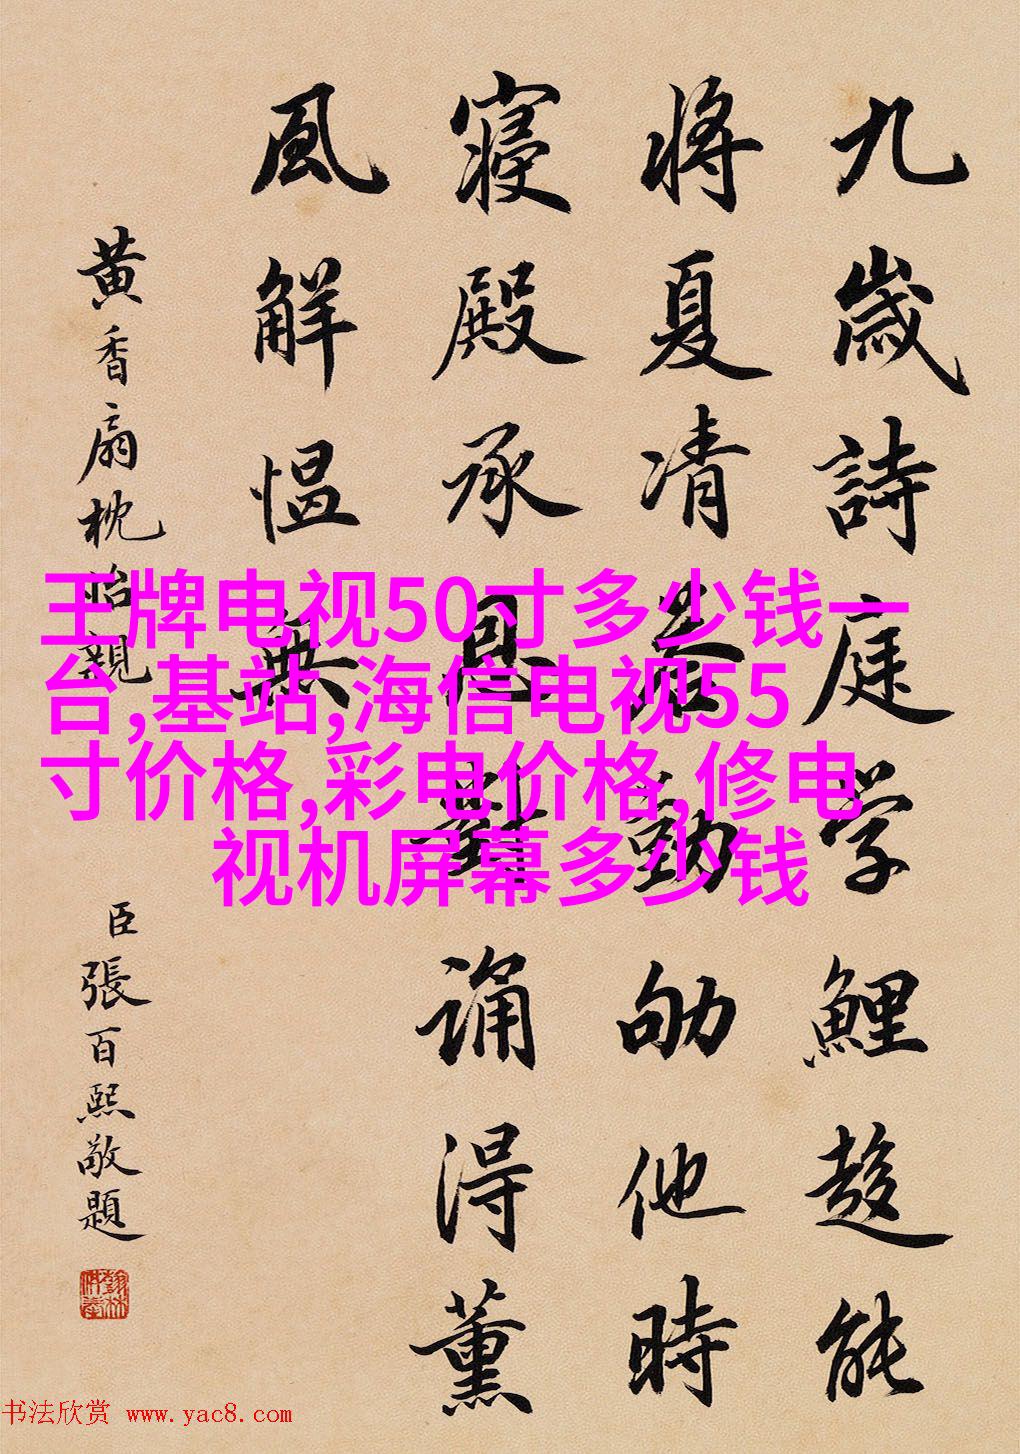 王牌电视50寸多少钱一
台,基站,海信电视55
寸价格,彩电价格,修电
视机屏幕多少钱
九歲詩庭學鯉趍能
將夏凊勤劬他時
寢殿承恩對誦得薰
風解慍無
黃香扇枕怡親
臣張百熙敬題
书法欣赏 www.yac8.com